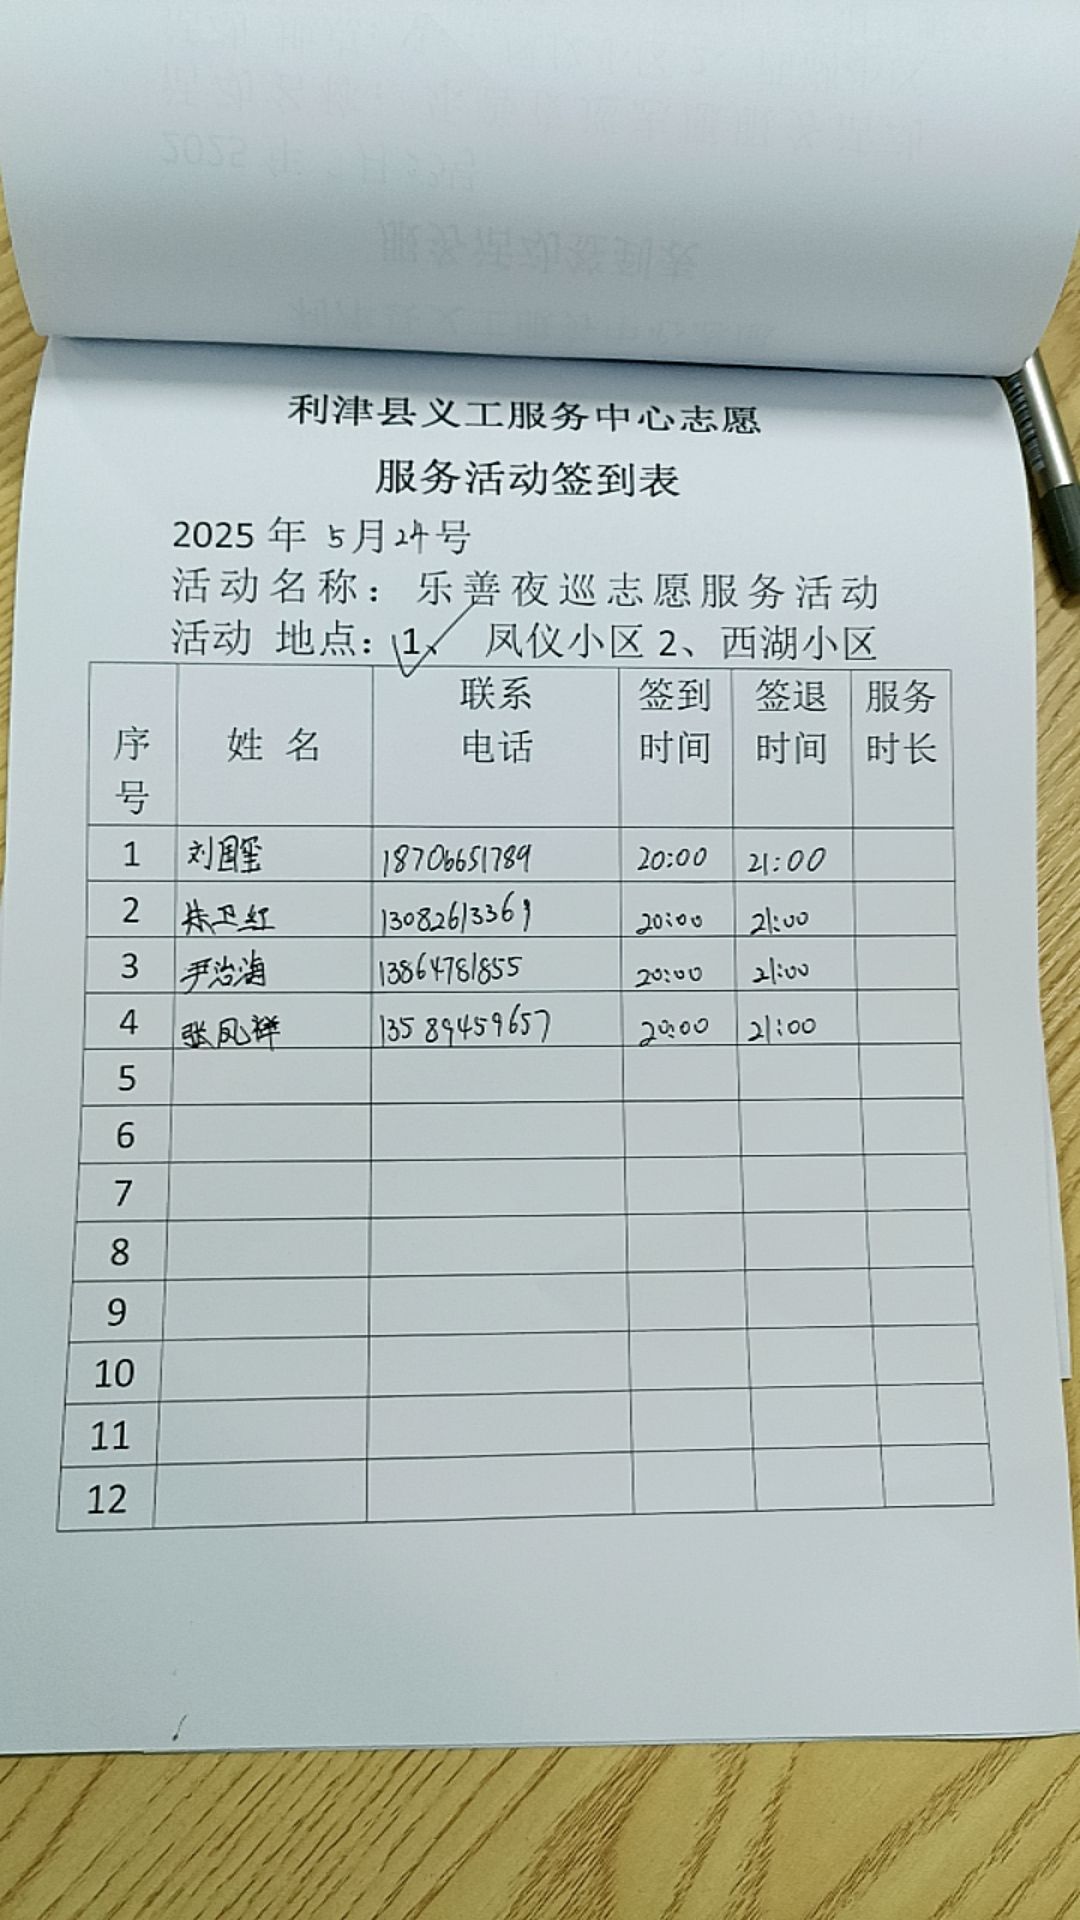 利津县义工服务中心志愿
服务活动签到表
2025 年 5月24号
活动名称：乐善夜巡志愿服务活动
活动 地点：1、 凤仪小区 2、西湖小区
序号 姓 名 联系电话 签到时间 签退时间 服务时长
1 刘国玺 18706651789 20:00 21:00
2 卫红 13082613369 20:00 21:00
3 尹治海 13864781855 20:00 21:00
4 张凤祥 13589459657 20:00 21:00
5
6
7
8
9
10
11
12